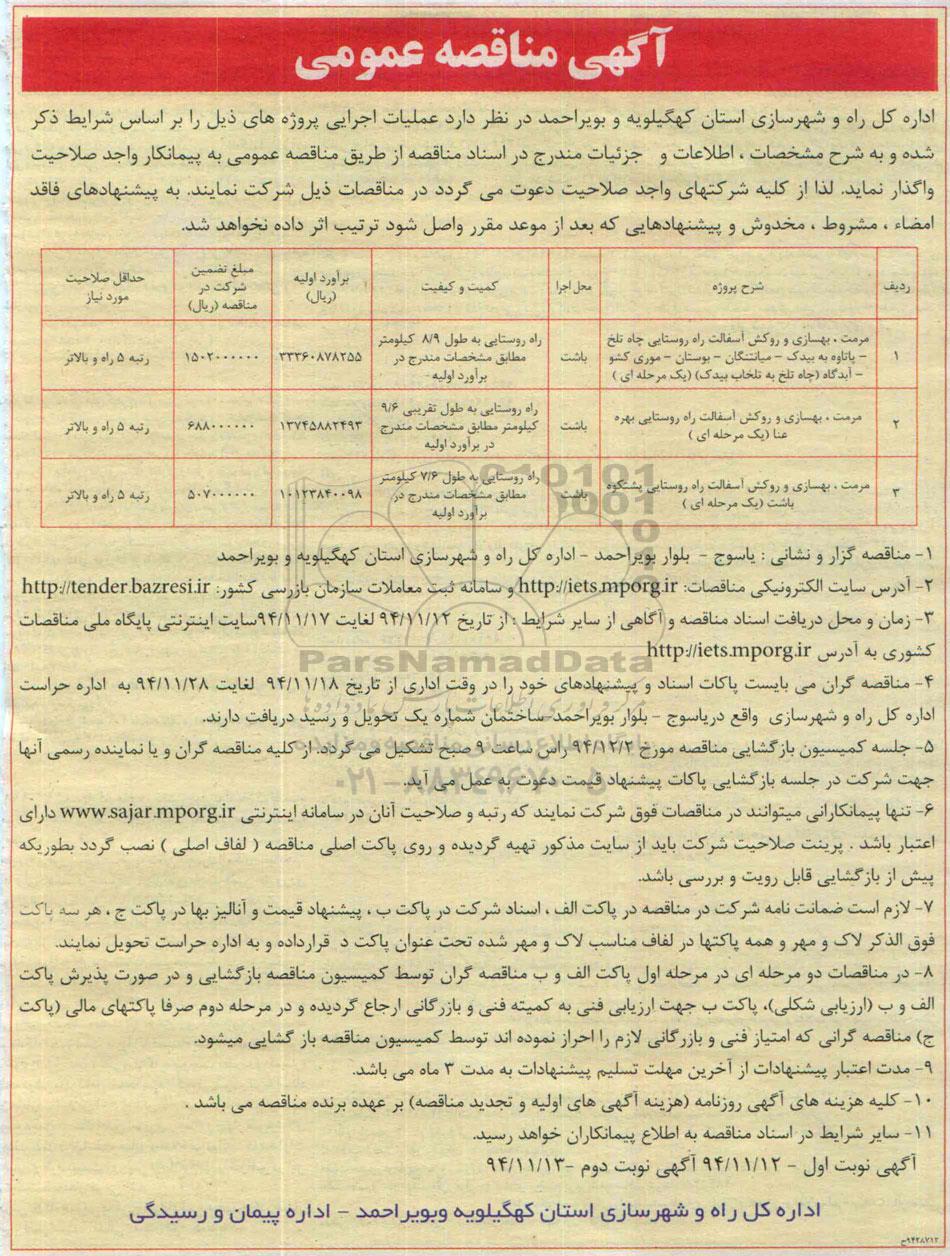 آگهی مناقصه عمومی
اداره کل راه و شهرسازی استان کهگیلویه و بویراحمد در نظر دارد عملیات اجرایی پروژه های ذیل را بر اساس شرایط ذکر
شده و به شرح مشخصات ، اطلاعات و جزئیات مندرج در اسناد مناقصه از طریق مناقصه عمومی به پیمانکار واجد صلاحیت
واگذار نماید. لذا از کلیه شرکتهای واجد صلاحیت دعوت می گردد در مناقصات ذیل شرکت نمایند. به پیشنهادهای فاقد
امضاء ، مشروط ، مخدوش و پیشنهادهایی که بعد از موعد مقرر واصل شود ترتیب اثر داده نخواهد شد.
ردیف شرح پروژه محل اجرا کمیت و کیفیت برآورد اولیه (ریال) مبلغ تضمین شرکت در مناقصه (ریال) حداقل صلاحیت مورد نیاز
۱ مرمت ، بهسازی و روکش آسفالت راه روستایی چاه تلخ - پاتاوه به بیدک - میانتنگان - بوستان - موری کشو - آبدگاه (چاه تلخ به تلخاب بیدک) (یک مرحله ای ) باشت راه روستایی به طول ۸/۹ کیلومتر مطابق مشخصات مندرج در برآورد اولیه ۳۳۳۶۰۸۷۸۲۵۵ ۱۵۰۲۰۰۰۰۰۰ رتبه ۵ راه و بالاتر
۲ مرمت ، بهسازی و روکش آسفالت راه روستایی بهره عنا (یک مرحله ای ) باشت راه روستایی به طول تقریبی ۹/۶ کیلومتر مطابق مشخصات مندرج در برآورد اولیه ۱۳۷۴۵۸۸۲۴۹۳ ۶۸۸۰۰۰۰۰۰ رتبه ۵ راه و بالاتر
۳ مرمت ، بهسازی و روکش آسفالت راه روستایی پشتکوه باشت (یک مرحله ای ) باشت راه روستایی به طول ۷/۶ کیلومتر مطابق مشخصات مندرج در برآورد اولیه ۱۰۱۲۳۸۴۰۰۹۸ ۵۰۷۰۰۰۰۰۰ رتبه ۵ راه و بالاتر
۱- مناقصه گزار و نشانی : یاسوج - بلوار بویراحمد - اداره کل راه و شهرسازی استان کهگیلویه و بویراحمد
۲- آدرس سایت الکترونیکی مناقصات: http://iets.mporg.ir و سامانه ثبت معاملات سازمان بازرسی کشور: http://tender.bazresi.ir
۳- زمان و محل دریافت اسناد مناقصه و آگاهی از سایر شرایط : از تاریخ ۹۴/۱۱/۱۲ لغایت ۹۴/۱۱/۱۷سایت اینترنتی پایگاه ملی مناقصات
کشوری به آدرس http://iets.mporg.ir
ParsNamadData
۴- مناقصه گران می بایست پاکات اسناد و پیشنهادهای خود را در وقت اداری از تاریخ ۹۴/۱۱/۱۸ لغایت ۹۴/۱۱/۲۸ به اداره حراست
اداره کل راه و شهرسازی واقع دریاسوج - بلوار بویراحمد- ساختمان شماره یک تحویل و رسید دریافت دارند.
۵- جلسه کمیسیون بازگشایی مناقصه مورخ ۹۴/۱۲/۲ راس ساعت ۹ صبح تشکیل می گردد. از کلیه مناقصه گران و یا نماینده رسمی آنها
جهت شرکت در جلسه بازگشایی پاکات پیشنهاد قیمت دعوت به عمل می آید.
۶- تنها پیمانکارانی میتوانند در مناقصات فوق شرکت نمایند که رتبه و صلاحیت آنان در سامانه اینترنتی www.sajar.mporg.ir دارای
اعتبار باشد . پرینت صلاحیت شرکت باید از سایت مذکور تهیه گردیده و روی پاکت اصلی مناقصه ( لفاف اصلی ) نصب گردد بطوریکه
پیش از بازگشایی قابل رویت و بررسی باشد.
۷- لازم است ضمانت نامه شرکت در مناقصه در پاکت الف ، اسناد شرکت در پاکت ب ، پیشنهاد قیمت و آنالیز بها در پاکت ج ، هر سه پاکت
فوق الذکر لاک و مهر و همه پاکتها در لفاف مناسب لاک و مهر شده تحت عنوان پاکت د قرارداده و به اداره حراست تحویل نمایند.
۸- در مناقصات دو مرحله ای در مرحله اول پاکت الف و ب مناقصه گران توسط کمیسیون مناقصه بازگشایی و در صورت پذیرش پاکت
الف و ب (ارزیابی شکلی)، پاکت ب جهت ارزیابی فنی به کمیته فنی و بازرگانی ارجاع گردیده و در مرحله دوم صرفا پاکتهای مالی (پاکت
ج) مناقصه گرانی که امتیاز فنی و بازرگانی لازم را احراز نموده اند توسط کمیسیون مناقصه باز گشایی میشود.
۹- مدت اعتبار پیشنهادات از آخرین مهلت تسلیم پیشنهادات به مدت ۳ ماه می باشد.
۱۰- کلیه هزینه های آگهی روزنامه (هزینه آگهی های اولیه و تجدید مناقصه) بر عهده برنده مناقصه می باشد .
۱۱- سایر شرایط در اسناد مناقصه به اطلاع پیمانکاران خواهد رسید.
آگهی نوبت اول - ۹۴/۱۱/۱۲ آگهی نوبت دوم -۹۴/۱۱/۱۳
اداره کل راه و شهرسازی استان کهگیلویه وبویراحمد - اداره پیمان و رسیدگی